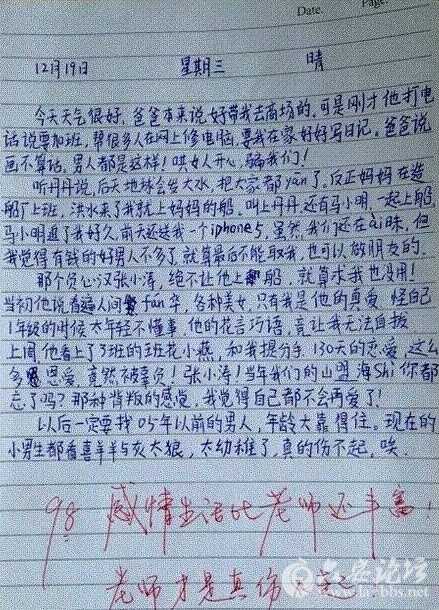 Date.
Page.
12月19日 星期三 晴
今天天气很好,爸爸本来说好带我去商场的,可是刚才他打电
话说要加班,帮很多人在网上修电脑,要我在家好好写日记。爸爸说
画不算话,男人都是这样!哄女人开心,骗我们!
听丹丹说,后天地球会发大水,把大家都yān了。反正妈妈在造
船厂上班,洪水来了我就上妈妈的船。叫上丹丹,还有马小明,一起上船,
马小明追了我好久,前天还送我一个iphone5,虽然,我们还在ài昧,但
我觉得有钱的好男人不多了,就算最后不能取我,也可以做朋友的。
那个负心汉张小涛,绝不让他上船,就算求我也没用!
当初他说看遍人间fán华,各种美女,只有我是他的真爱,怪自己
1年级的时候太年轻不懂事,他的花言巧语,竟让我无法自拔
上周他看上了3班的班花小燕,和我提分手,130天的恋爱,这么
多恩爱,竟然被辜负!张小涛!当年我们的山盟海Shì你都
忘了吗?那种背叛的感觉,我觉得自己都不会再爱了!
以后一定要找05年以前的男人,年龄大靠得住。现在的
小男生都看喜羊羊与灰太狼,太幼稚了,真的伤不起,唉。
98 感情生活比老师还丰富!
老师才是真伤不起
六安论坛